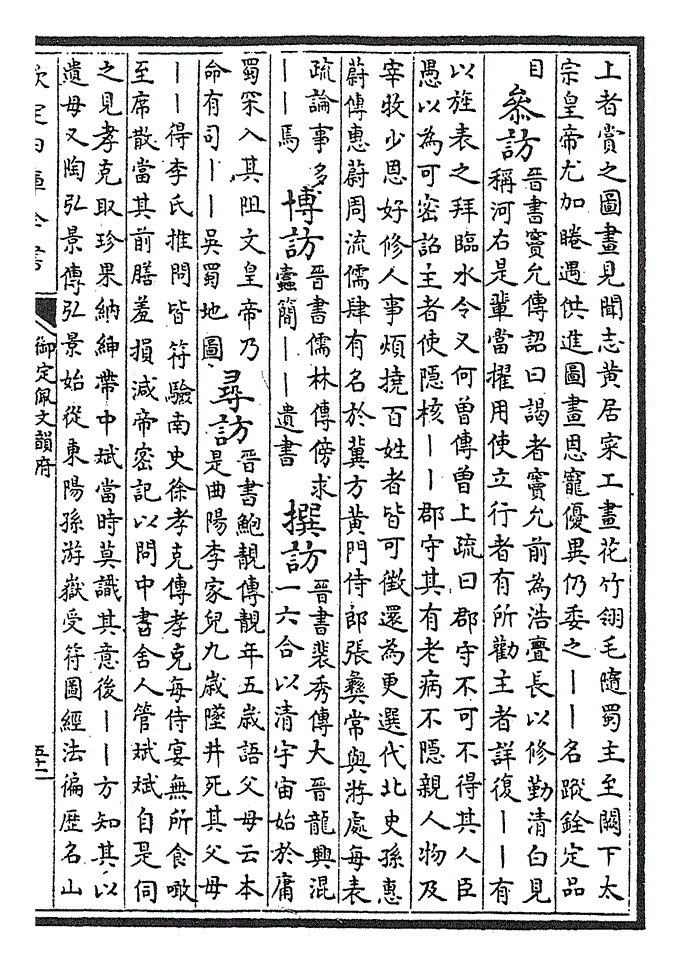 上者賞之圖畫見聞志黄居寀工畫花竹翎毛隨蜀主至闕下太
宗皇帝尤加睠遇供進圖畫恩寵優異仍委之丨丨名蹤銓定品
目
參訪
晉書竇允傳詔曰謁者竇允前為浩亹長以修勤清白見
稱河右是輩當擢用使立行者有所勸主者詳復丨丨有
以旌表之拜臨水令又何曾傳曾上疏曰郡守不可不得其人臣
愚以為可密詔主者使隱核丨丨郡守其有老病不隱親人物及
宰牧少恩好修人事煩撓百姓者皆可徵還為更選代北史孫惠
蔚傳惠蔚周流儒肆有名於冀方黄門侍郎張彞常與游處每表
疏論事多
丨丨焉
博訪
晉書儒林傳傍求
蠹簡丨丨遺書
撰訪
晉書裴秀傳大晉龍興混
一六合以清宇宙始於庸
蜀罙入其阻文皇帝乃
命有司丨丨吳蜀地圖
尋訪
晉書鮑靚傳靚年五歲語父母云本
是曲陽李家兒九歲墜井死其父母
丨丨得李氏推問皆符驗南史徐孝克傳孝克每侍宴無所食噉
至席散當其前膳羞損減帝密記以問中書舍人管斌斌自是伺
之見孝克取珍果納紳帶中斌當時莫識其意後丨丨方知其以
遺母又陶弘景傳弘景始從東陽孫游嶽受符圖經法徧歴名山
欽定四庫全書
御定佩文韻府